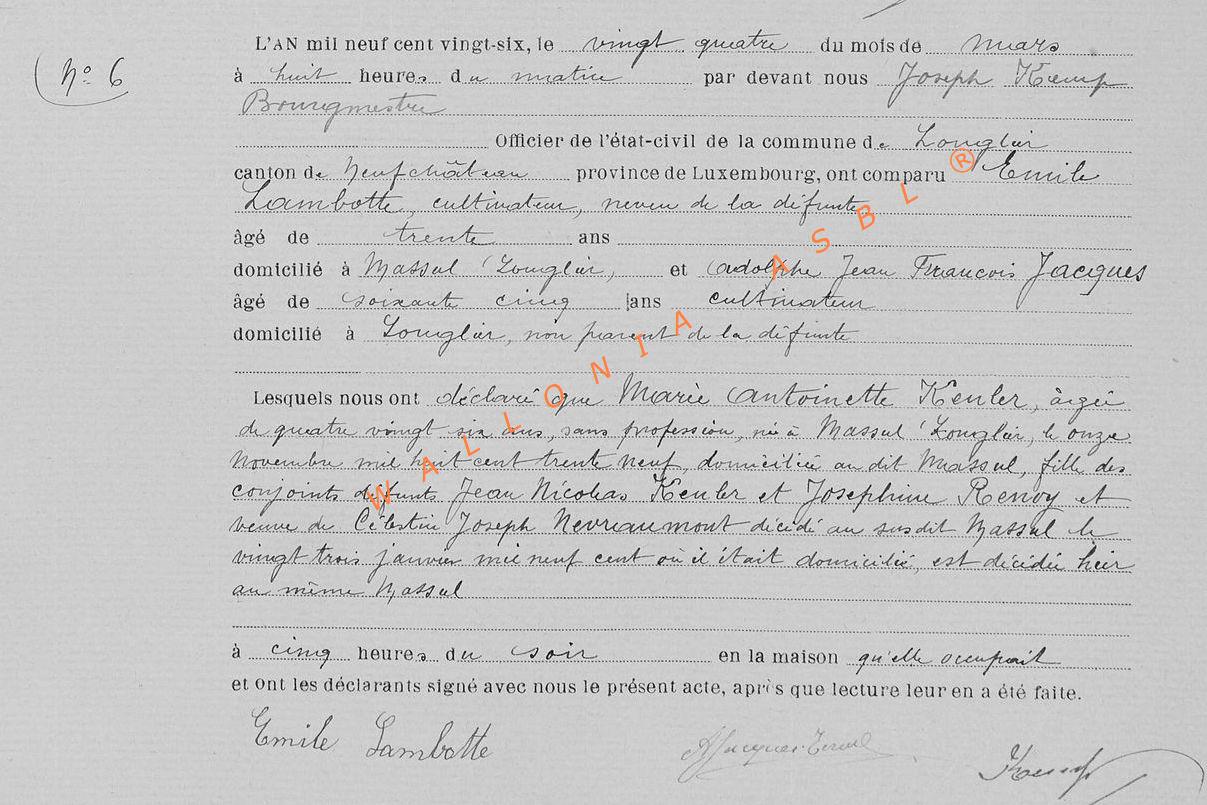 L'AN mil neuf cent vingt-six, le vingt quatre du mois de mars
N° 6
à huit heures du matin par devant nous Joseph Kemp
Bourgmestre
Officier de l'état-civil de la commune de Longlier
canton de Neufchâteau province de Luxembourg, ont comparu Emile
Lambotte, cultivateur, neveu de la défunte
âgé de trente ans
domicilié à Massul Longlier, et Adolphe Jean François Jacques
âgé de soixante cinq ans cultivateur
domicilié à Longlier, non parent de la défunte
Lesquels nous ont déclaré que Marie Antoinette Keuler, âgée
de quatre vingt six ans, sans profession, née à Massul Longlier, le onze
novembre mil huit cent trente neuf, domiciliée au dit Massul, fille des
conjoints défunts Jean Nicolas Keuler et Josephine Renoy et
veuve de Célestin Joseph Nevreaumont décédé au susdit Massul le
vingt trois janvier mil neuf cent où il était domicilié, est décédée hier
au même Massul
à cinq heures du soir en la maison qu'elle occupait
et ont les déclarants signé avec nous le présent acte, après que lecture leur en a été faite.
Emile Lambotte
AJacques
Kemp
WALLONIA ASBL ®